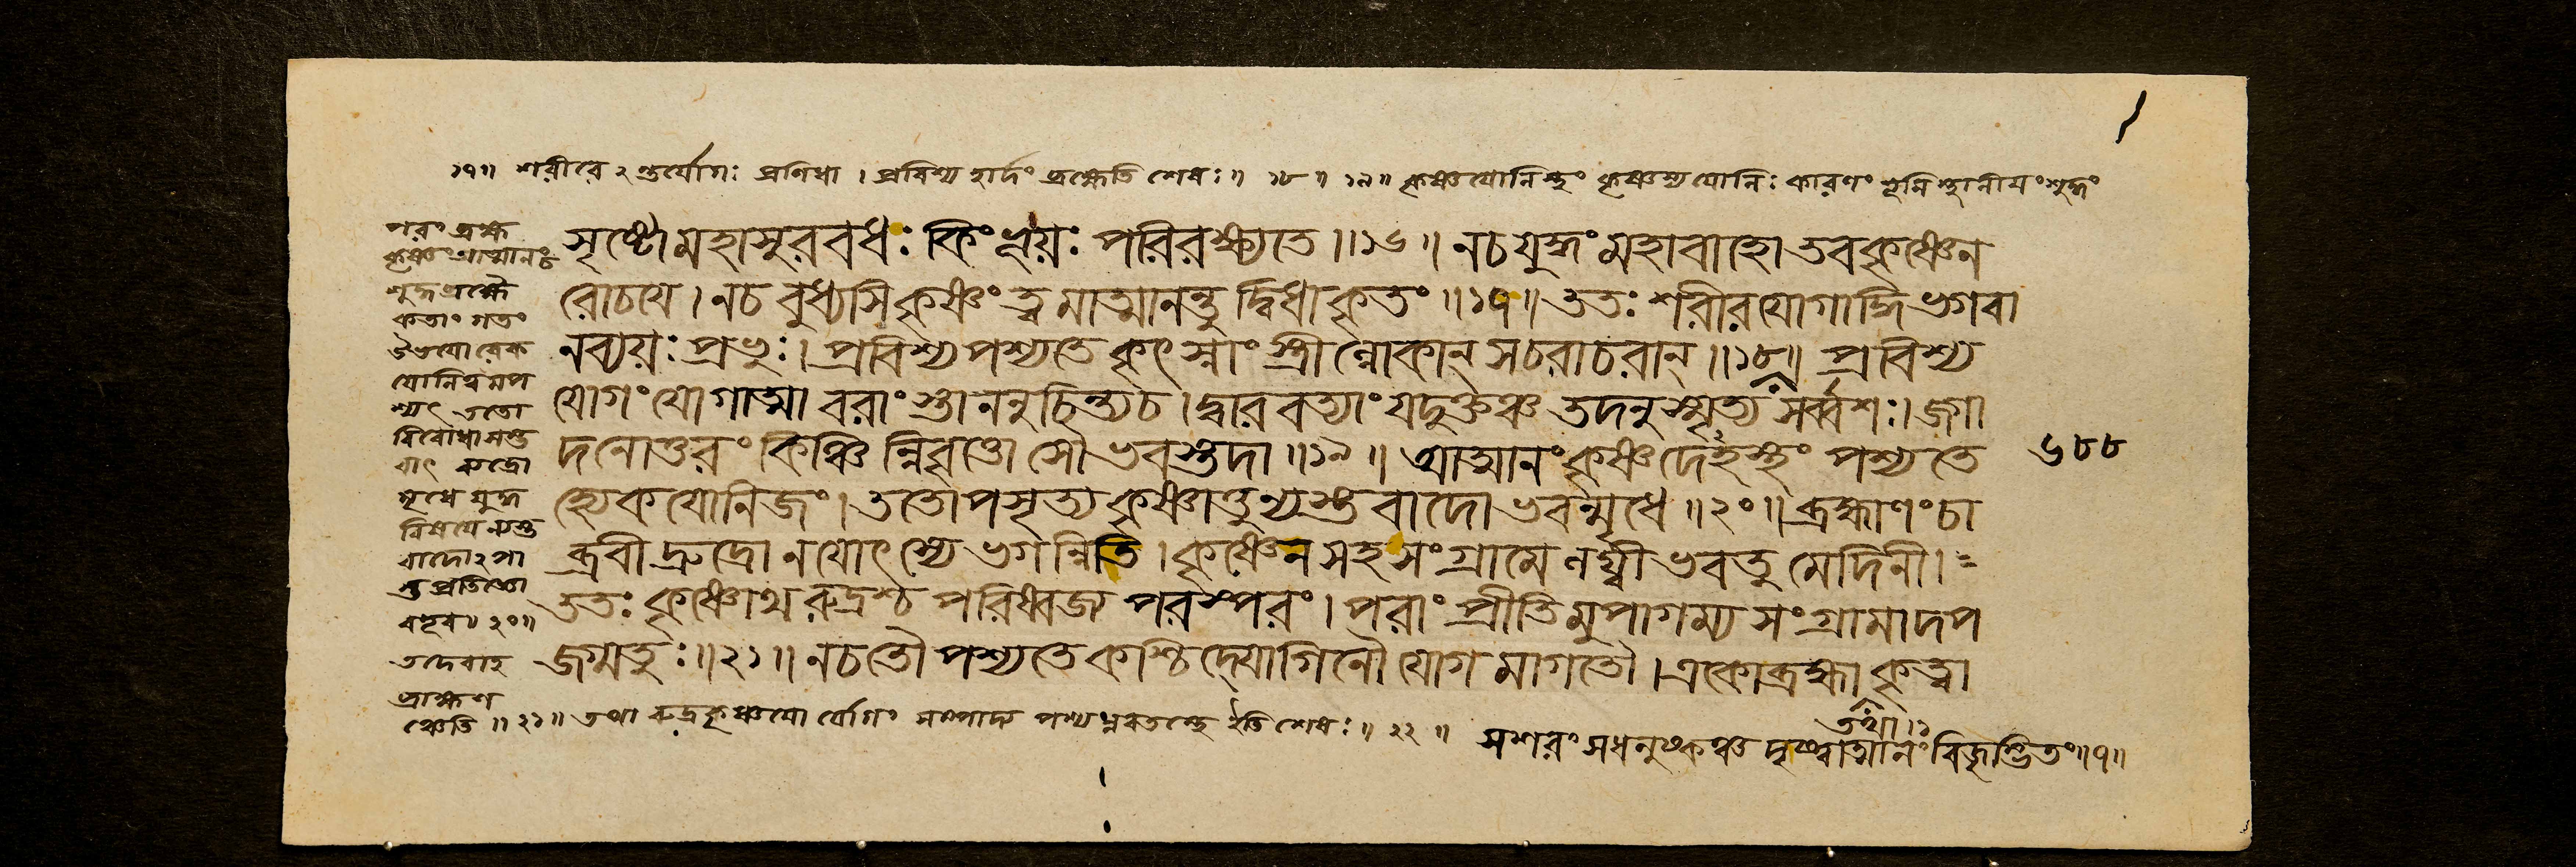 ১৭॥ শরীরে ২ন্তর্যোগঃ প্রণিধা। প্রবিশ্য হার্দং ব্রহ্মেতি শেষঃ॥ ১৮॥ ১৯॥ কৃষ্ণযোনিস্থং কৃষ্ণস্য যোনিঃ কারণং
পরং ব্রহ্ম
কৃষ্ণং আত্মানং চ
শুদ্ধব্রহ্মৈ
কতাং গতং
উভয়োরেক
যোনিত্বমপ
শ্যৎ ততো
বিরোধাসম্ভ
বাৎ রুদ্রো
মৃধে যুদ্ধ
বিষয়ে ন্যস্ত
বাদো২পা
স্তপ্রতিজ্ঞো
বভূব॥ ২০॥
তদেবাহ
ব্রাহ্মণ
সৃষ্টৌ মহাসুরবধঃ কিং ভূয়ঃ পরিরক্ষ্যতে॥১৬॥ নচ যুদ্ধং মহাবাহো তব কৃষ্ণেন
রোচয়ে। নচ বুধ্যসি কৃষ্ণং ত্বমাত্মানন্তু দ্বিধাকৃতং॥১৭॥ ততঃ শরীরযোগাদ্ধি ভগবা
নব্যয়ঃ প্রভুঃ। প্রবিশ্য পশ্যতে কৃৎস্নাং স্ত্রীন্লোকান্ সচরাচরান্॥১৮॥ প্রবিশ্য
যোগং যোগাত্মা বরাংস্তাননুচিন্ত্য চ। দ্বারবত্যাং যদুক্তঞ্চ তদনুস্মৃত্য সর্ব্বশঃ। জগা
দ নোত্তরং কিঞ্চিন্নিবৃত্তো সৌ ভবত্তদা॥১৯॥ আত্মানং কৃষ্ণদেহস্থং পশ্যতে
হ্যেকযোনিজং। ততোপসৃত্য কৃষ্ণাত্তু ন্যস্তবাদো ভবন্মৃধে॥২০॥ ব্রহ্মাণং চা
ব্রবীদ্রুদ্রো ন যোৎস্যে ভগন্নিতি। কৃষ্ণেন সহ সংগ্রামে লঘ্বী ভবতু মেদিনী।
ততঃ কৃষ্ণোথ রুদ্রশ্চ পরিষ্বজ্য পরস্পরং। পরাং প্রীতিমুপাগম্য সংগ্রামাদপ
জগ্মতুঃ॥২১॥ নচ তৌ পশ্যতে কশ্চিদ্যোগিনৌ যোগমাগতৌ। একো ব্রহ্মা কৃত্বা
৬৪৪
ঞ্চেতি॥ ২১॥ তথা রুদ্রকৃষ্ণয়ো র্যোগং সম্পাদ্য পশ্যন্নবতস্থে ইতি শেষঃ॥ ২২॥
তথা।১
সশরং সধনুষ্কঞ্চ দৃষ্ট্বাত্মানং বিজৃম্ভিতং॥৭॥